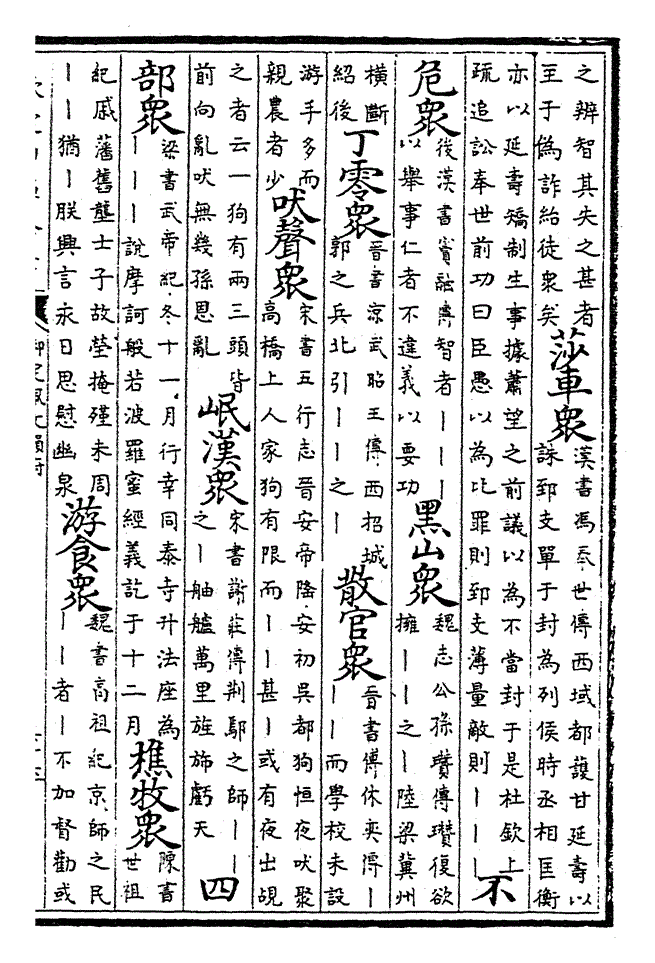 之辨智其失之甚者
主于偽詐紿徒衆矣
莎車衆
漢書馮奉世傳西域都護甘延壽以
誅郅支單于封為列侯時丞相匡衡
亦以延壽矯制生事據蕭望之前議以為不當封于是杜欽上
疏追訟奉世前功曰臣愚以為比罪則郅支薄量敵則丨丨丨
不
危衆
後漢書竇融傳智者丨丨丨
以舉事仁者不違義以要功
黑山衆
魏志公孫瓚傳瓚復欲
擁丨丨之丨陸梁冀州
横斷
紹後
丁零衆
晉書涼武昭王傳西招城
郭之兵北引丨丨之丨
散官衆
晉書傅休奕傳丨
丨而學校未設
游手多而
親農者少
吠聲衆
宋書五行志晉安帝隆安初吳都狗恒夜吠聚
高橋上人家狗有限而丨丨甚丨或有夜出覘
之者云一狗有兩三頭皆
前向亂吠無幾孫恩亂
岷漢衆
宋書謝莊傳荆鄢之師丨丨
之丨舳艫萬里旌斾虧天
四
部衆
梁書武帝紀冬十一月行幸同泰寺升法座為
丨丨丨說摩訶般若波羅蜜經義訖于十二月
樵牧衆
陳書
世祖
紀戚藩舊壟士子故塋掩殣未周
丨丨猶丨朕興言永日思慰幽泉
游食衆
魏書高祖紀京師之民
丨丨者丨不加督勸或
御定佩文韻府